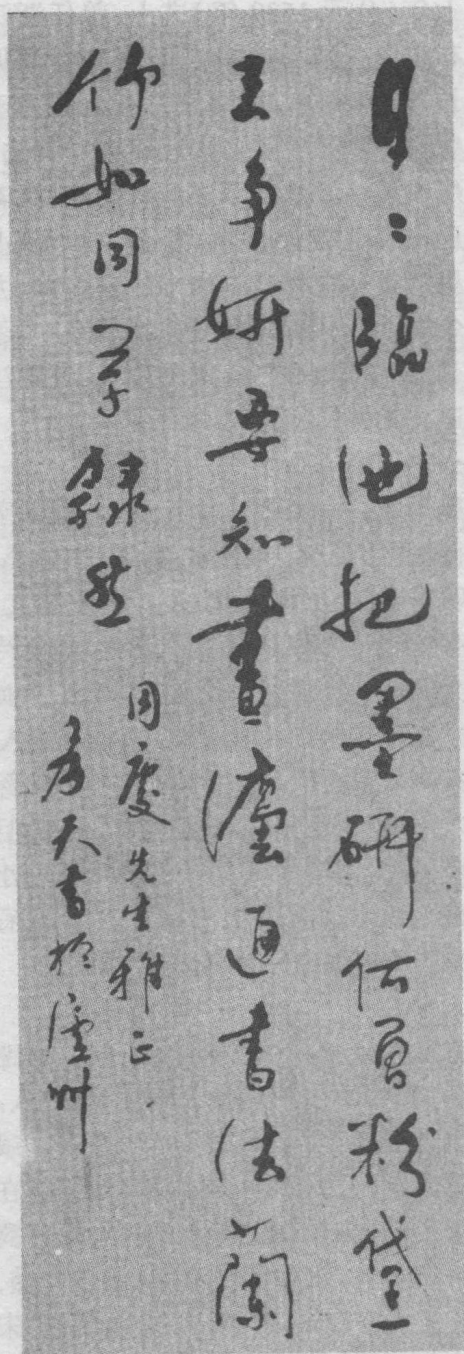 日〻臨池把墨研何曾粉黛
去争妍要知畫灋通書法蘭
竹如同草隸然
慶先生雅正
天書於州